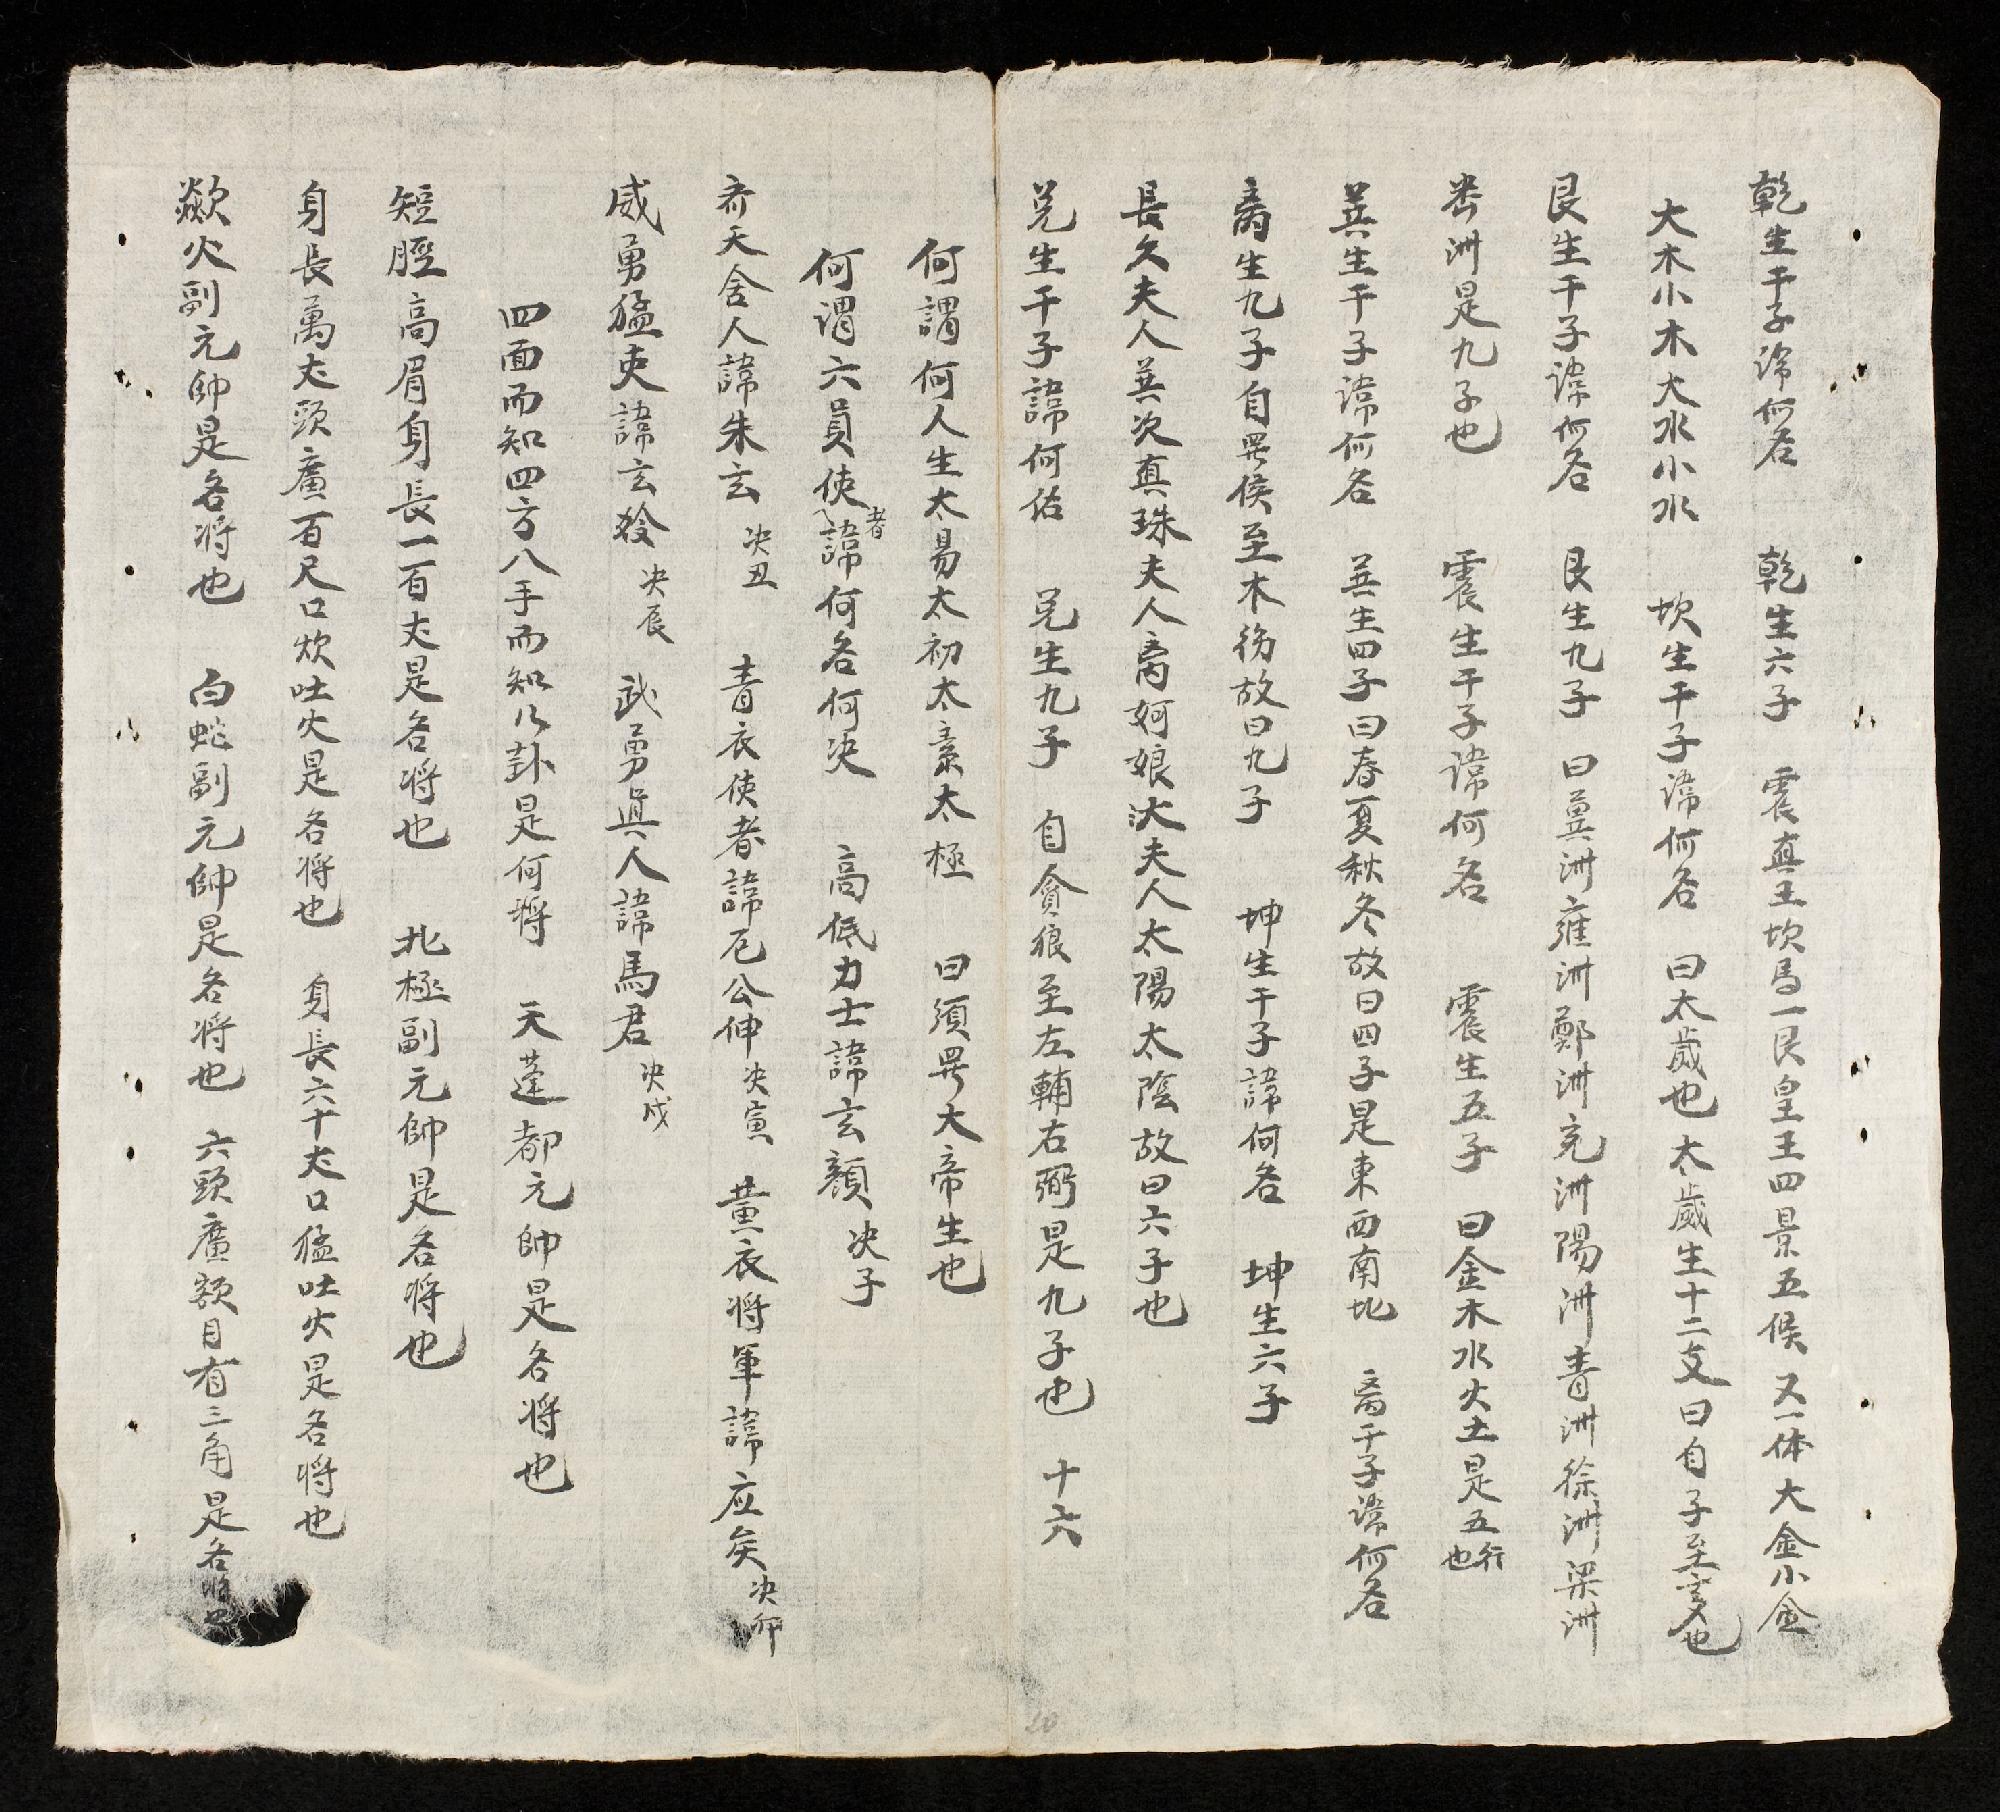 乾生干子諱何名 乾生六子 震真王坎馬一艮皇王四景五候 又一体大金小金
大木小木大水小水 坎生干子諱何名 曰太歲也太歲生十二支曰自子至亥也
艮生干子諱何名 艮生九子 曰冀洲雍洲鄭洲兗洲陽洲青洲徐洲梁洲
洲是九子也 震生干子諱何名 震生五子 曰金木水火土是五行也
巽生干子諱何名 巽生四子曰春夏秋冬故曰四子是東西南北 离干子諱何名
离生九子自羅侯至木the故曰九子 坤生干子諱何名 坤生六子
長久夫人巽次真珠夫人离妸娘沃夫人太陽太陰故曰六子也
兌生干子諱何佑 兌生九子 自貪狼至左輔右弼是九子也 十六
何謂何人生太易太初太素太極 曰須羅大帝生也
何謂六員使者諱何名何決 高低力士諱玄顏 決子
齐天舍人諱朱玄 決丑 青衣使者諱厄公伸 決寅 黄衣将軍諱应矣 決卯
威勇猛吏諱玄殺 決辰 武勇眞人諱馬君 決戌
四面而知四方八手而知八卦是何将 天蓬都元帥是名将也
短脛高眉身長一百丈是名将也 北極副元帥是名将也
身長萬丈頭廣百尺口炊吐火是名将也 身長六十丈口猛吐火是名将也
歘火副元帥是名将也 白蛇副元帥是名将也 六頭廣額目有三角是名将也